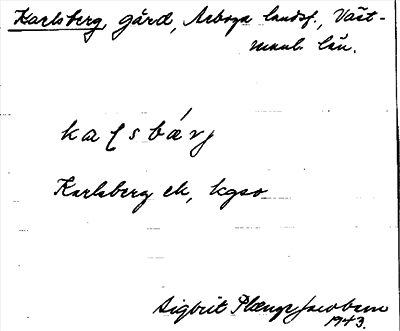 Karlsberg, gård, Arboga landsf., Väst-
manl. län.
kaʃsbárj
Karlsberg ek, kgso
Sigbrit Plænge Jacobson
1943.